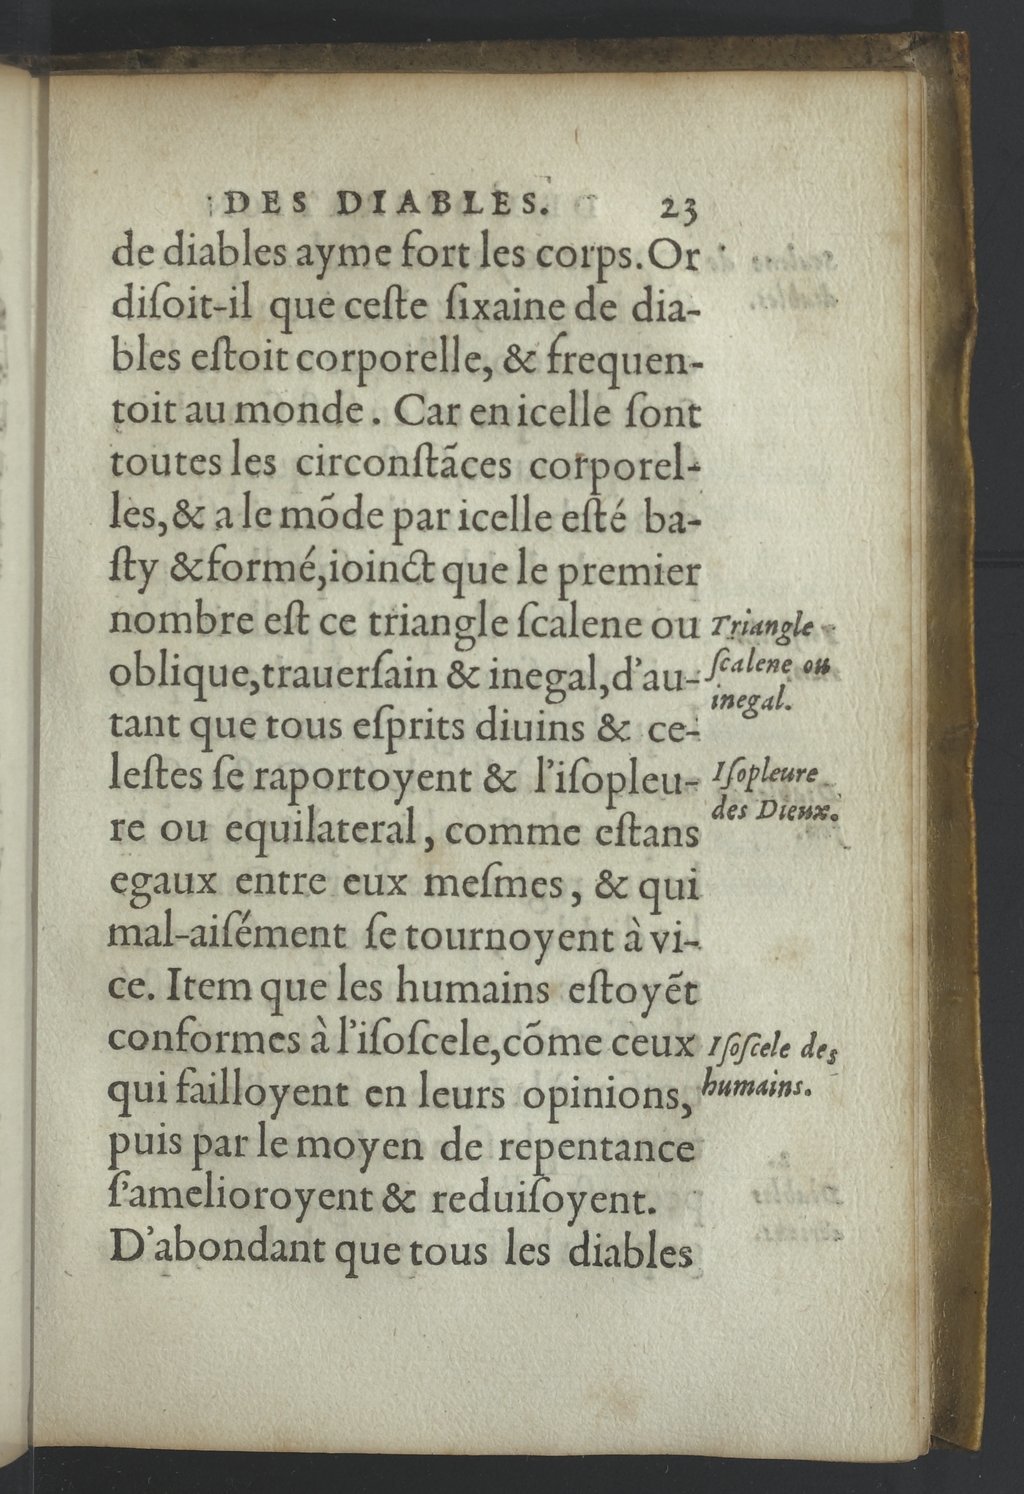 DES DIABLES. 23
de diables ayme fort les corps. Or
diſoit-il que ceſte ſixaine de dia-
bles eſtoit corporelle, & frequen-
toit au monde. Car en icelle ſont
toutes les circonſtãces corporel-
les, & a le mõde par icelle eſté ba-
ſty & formé, ioinct que le premier
nombre eſt ce triangle ſcalene ou
oblique, trauerſain & inegal, d'au-
tant que tous eſprits diuins & ce-
leſtes ſe raportoyent & l'iſopleu-
re ou equilateral, comme eſtans
egaux entre eux meſmes, & qui
mal-aiſément ſe tournoyent à vi-
ce. Item que les humains eſtoyẽt
conformes à l'iſoſcele, cõme ceux
qui failloyent en leurs opinions,
puis par le moyen de repentance
ſ'amelioroyent & reduiſoyent.
D'abondant que tous les diables
Triangle
ſcalene ou
inegal.
Iſopleure
des Dieux.
Iſoſcele des
humains.